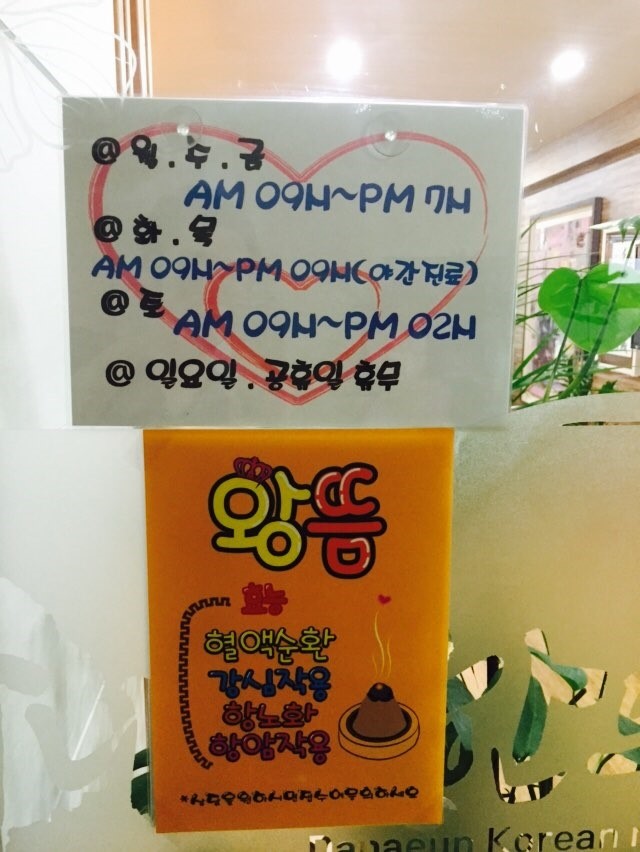 @ 월 . 수 . 금
AM 09시~PM 7시
@ 화 . 목
AM 09시~PM 09시(야간진료)
@ 토
AM 09시~PM 02시
@ 일요일 . 공휴일 휴무
왕뜸
효능
혈액순환
강심작용
항노화
항암작용
Korean